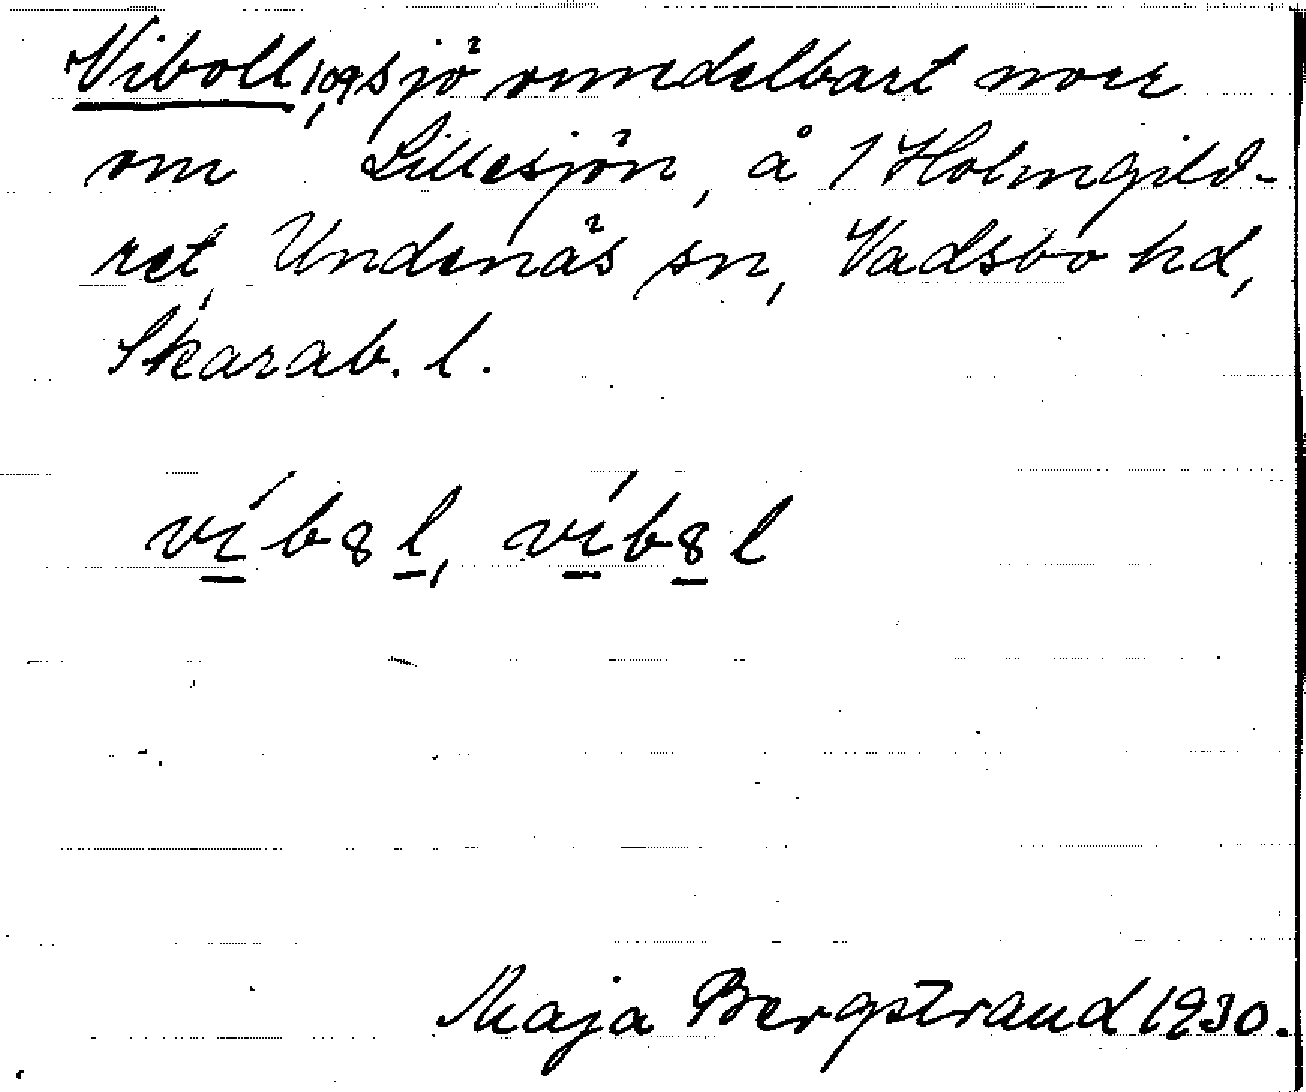 Viboll, 109, sjö omedelbart norr
om Lillesjön, å 1 Holmgild-
ret, Undenäs sn, Vadsbo hd,
Skarab. l.
víb8l, víb8l
Maja Bergstrand 1930.